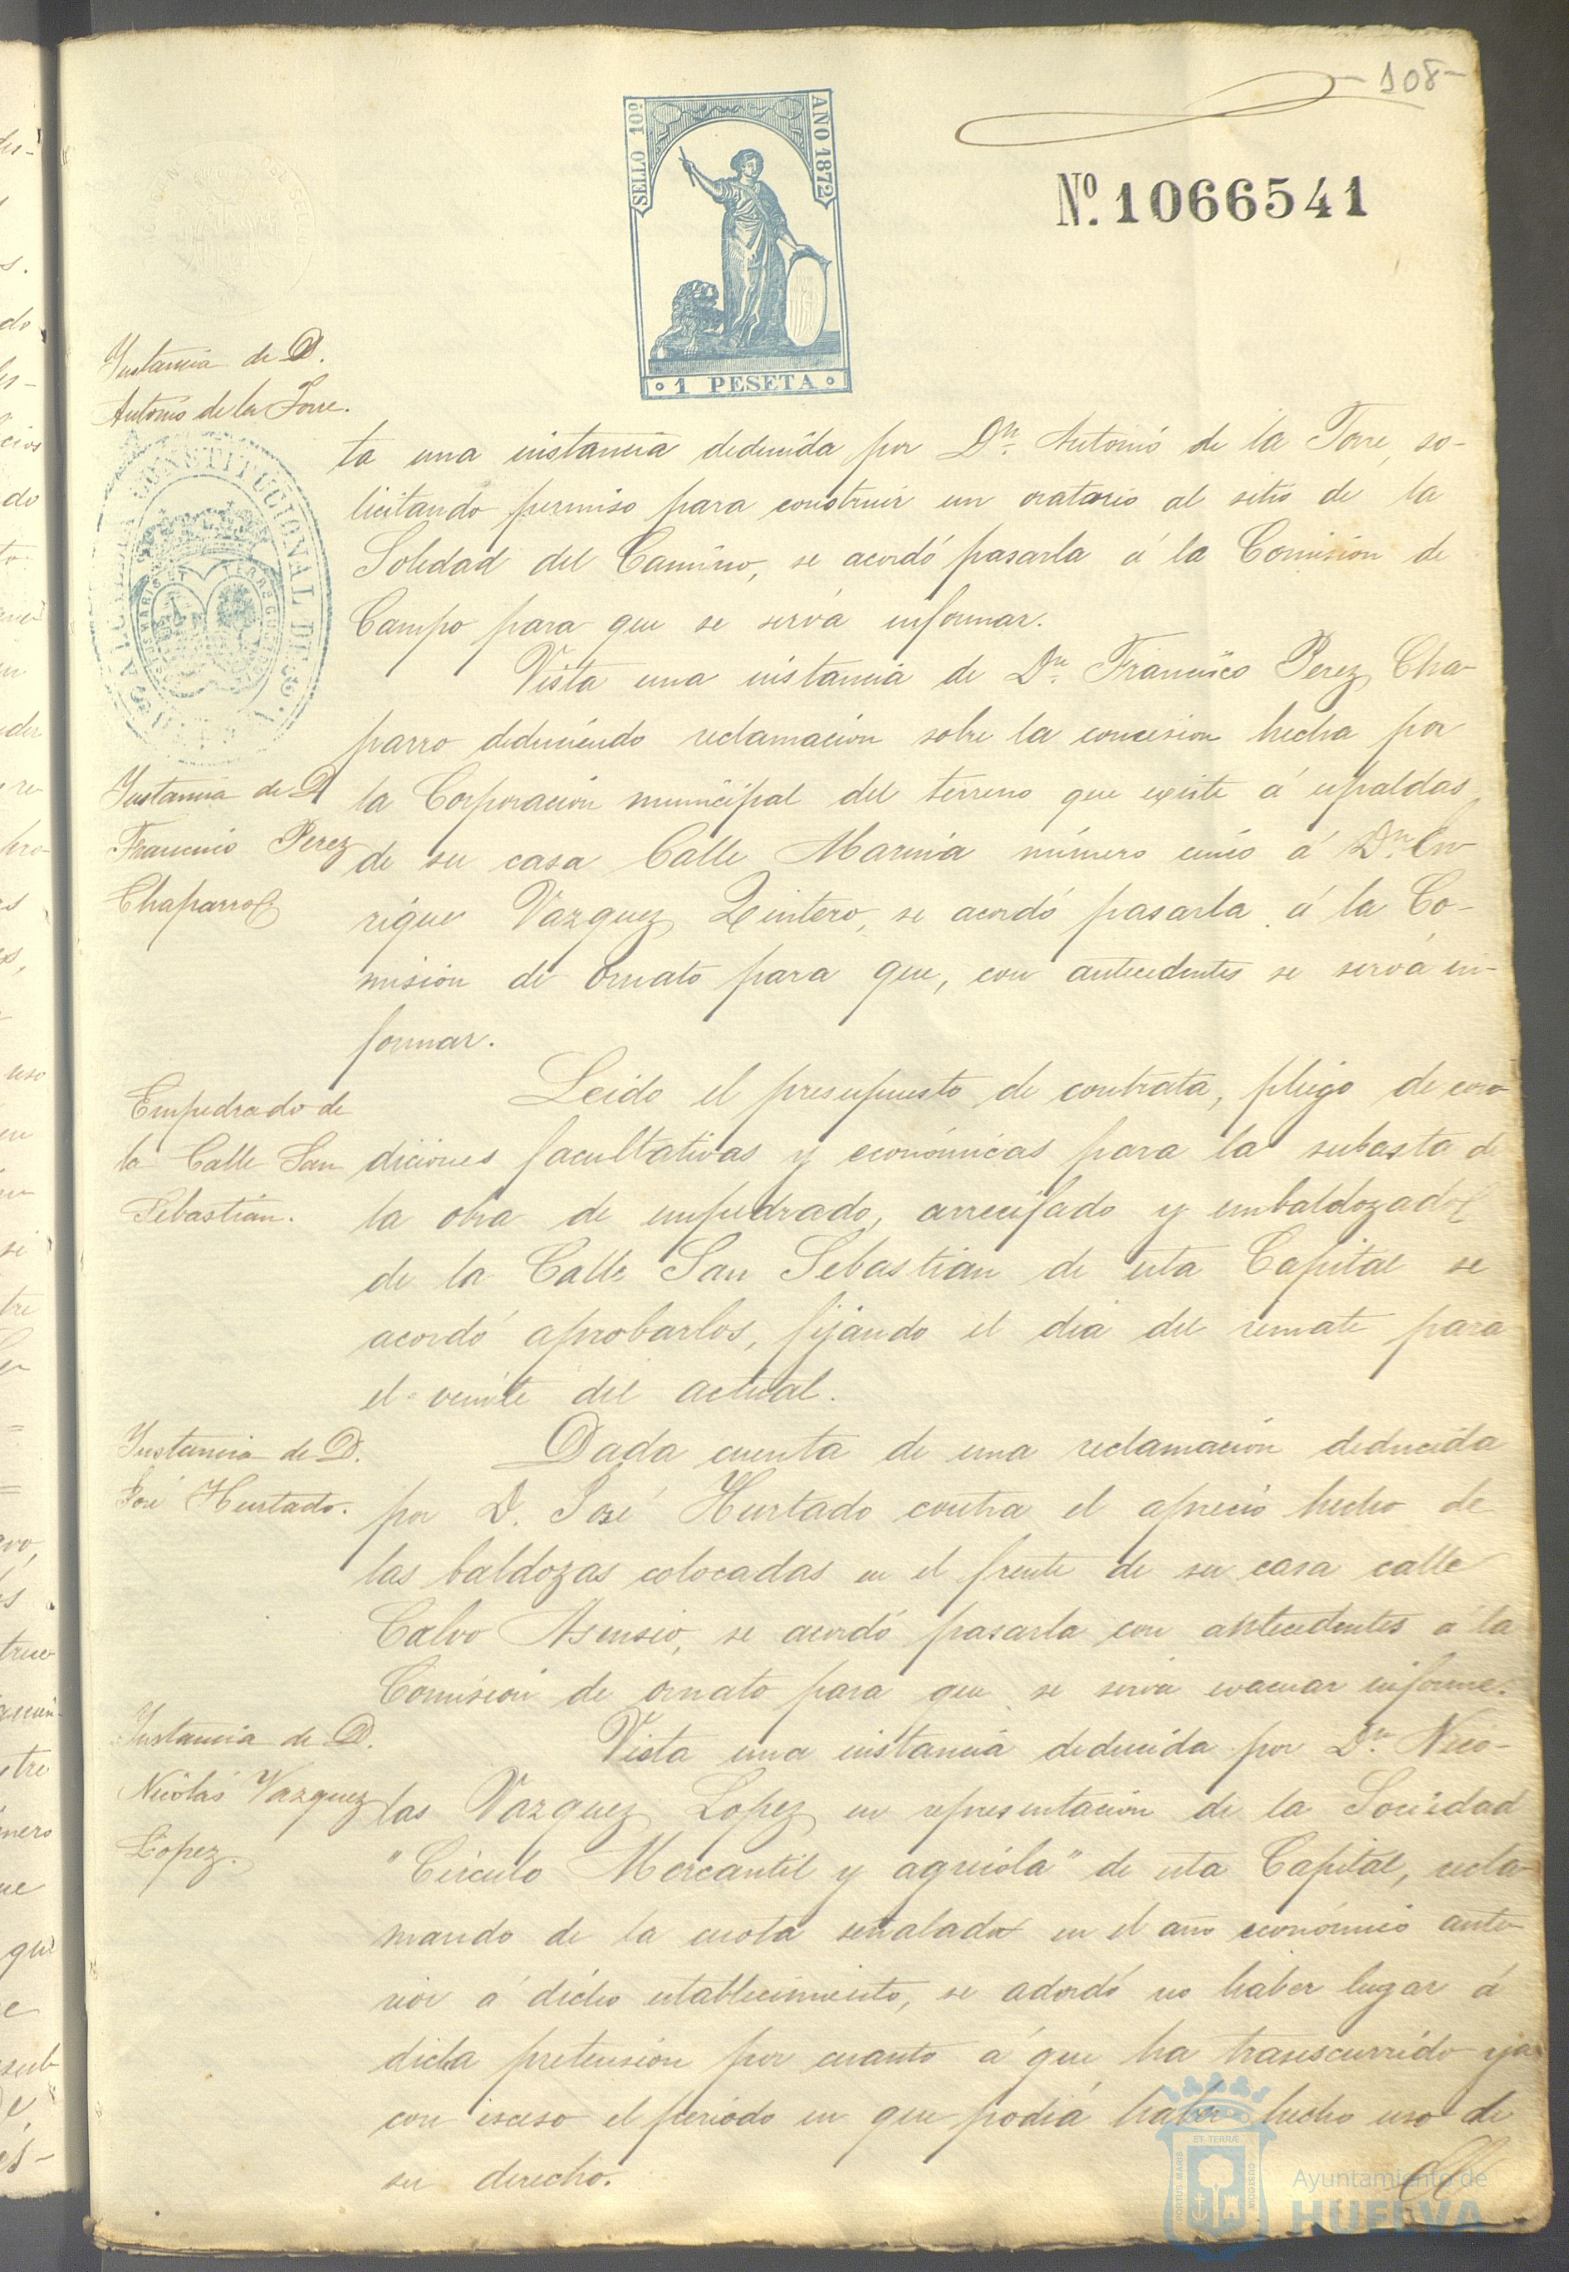 -108-
SELLO 10º
AÑO 1872
Nº. 1066541
1 PESETA
Instancia de D.
Antonio de la Torre.
ta una instancia deducida por Dn. Antonio de la Torre, so-
licitando permiso para construir un oratorio al sitio de la
Soledad del Camino, se acordó pasarla á la Comision de
Campo para que se sirva informar.
ALCALDIA CONSTITUCIONAL DE
Instancia de D
Francisco Perez
Chaparro
Vista una instancia de Dn. Francisco Perez Cha-
parro deduciendo reclamacion sobre la concesion hecha por
la Corporacion municipal del terreno que existe á espaldas
de su casa Calle Marina número cinco á Dn. En-
rique Vazquez Quintero, se acordó pasarla á la Co-
mision de Ornato para que, con antecedentes se sirva in-
formar.
Empedrado de
la Calle San
Sebastián.
Leido el presupuesto de contrata, pliego de con
diciones facultativas y económicas para la subasta d
la obra de empedrado, arrecifado y embaldozado
de la Calle San Sebastian de esta Capital se
acordó aprobarlos, fijando el dia del remate para
el veinte del actual.
Instancia de D.
José Hurtado.
Dada cuenta de una reclamacion deducida
por D. José Hurtado contra el aprecio hecho de
las baldozas colocadas en el frente de su casa calle
Calvo Asensio, se acordó pasarla con antecedentes á la
Comision de ornato para que se sirva evacuar informe.
Instancia de D.
Nicolás Vazquez
Lopez.
Vista una instancia deducida por Dn. Nico-
las Vazquez Lopez en representacion de la Sociedad
"Circulo Mercantil y agricola" de esta Capital, recla-
mando de la cuota señalada en el año económico ante-
rior á dicho establecimiento, se adordó no haber lugar á
dicha pretension por cuanto á que ha trasescurrido ya
con esceso el periodo en que podiá haber hecho uso de
su derecho.
PORTUS MARIS
ET TERRÆ
CUSTODIA
Ayuntamiento de
HUELVA